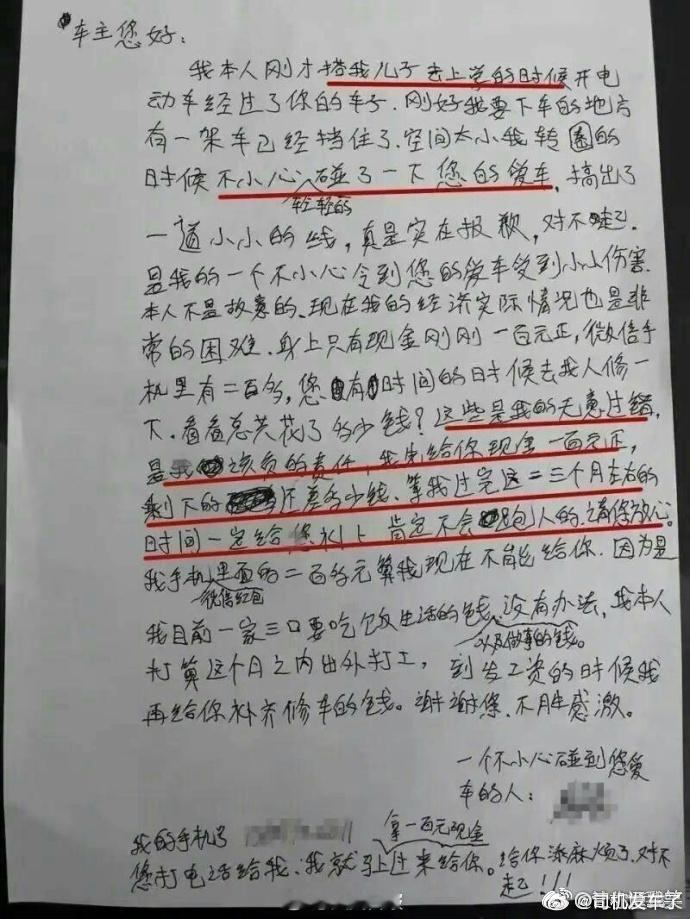 车主您好：
我本人刚才搭我儿子去上学的时候开电
动车经过了你的车子.刚好我要下车的地方
有一架车已经挡住了.空间太小我转圈的
时候不小心碰了一下您的爱车，搞出了
轻轻的
一道小小的线，真是实在报歉，对不起.
是我的一个不小心令到您的爱车受到小小伤害.
本人不是故意的.现在我的经济实际情况也是非
常的困难.身上只有现金刚刚一百元正，微信手
机里有二百多，您有时间的时候去找人修一
下.看看总共花了多少钱？这些是我的无意过错，
是我该负的责任，我先给你现金一百元正，
剩下的还差多少钱、等我过完这二三个月左右的
时间一定给您补上肯定不会跑人的.请您放心.
我手机里面的二百多元算我现在不能给你.因为是
微信红包
我目前一家三口要吃饭生活的钱.没有办法，我本人
以及做事的钱。
打算这个月之内出外打工，到发工资的时候我
再给你补齐修车的钱。谢谢您.不胜感激。
一个不小心碰到您爱
车的人：
我的手机号
拿一百元现金
您打电话给我.我就马上过来给你。给你添麻烦了.对不
起！！！
@司机爱车学